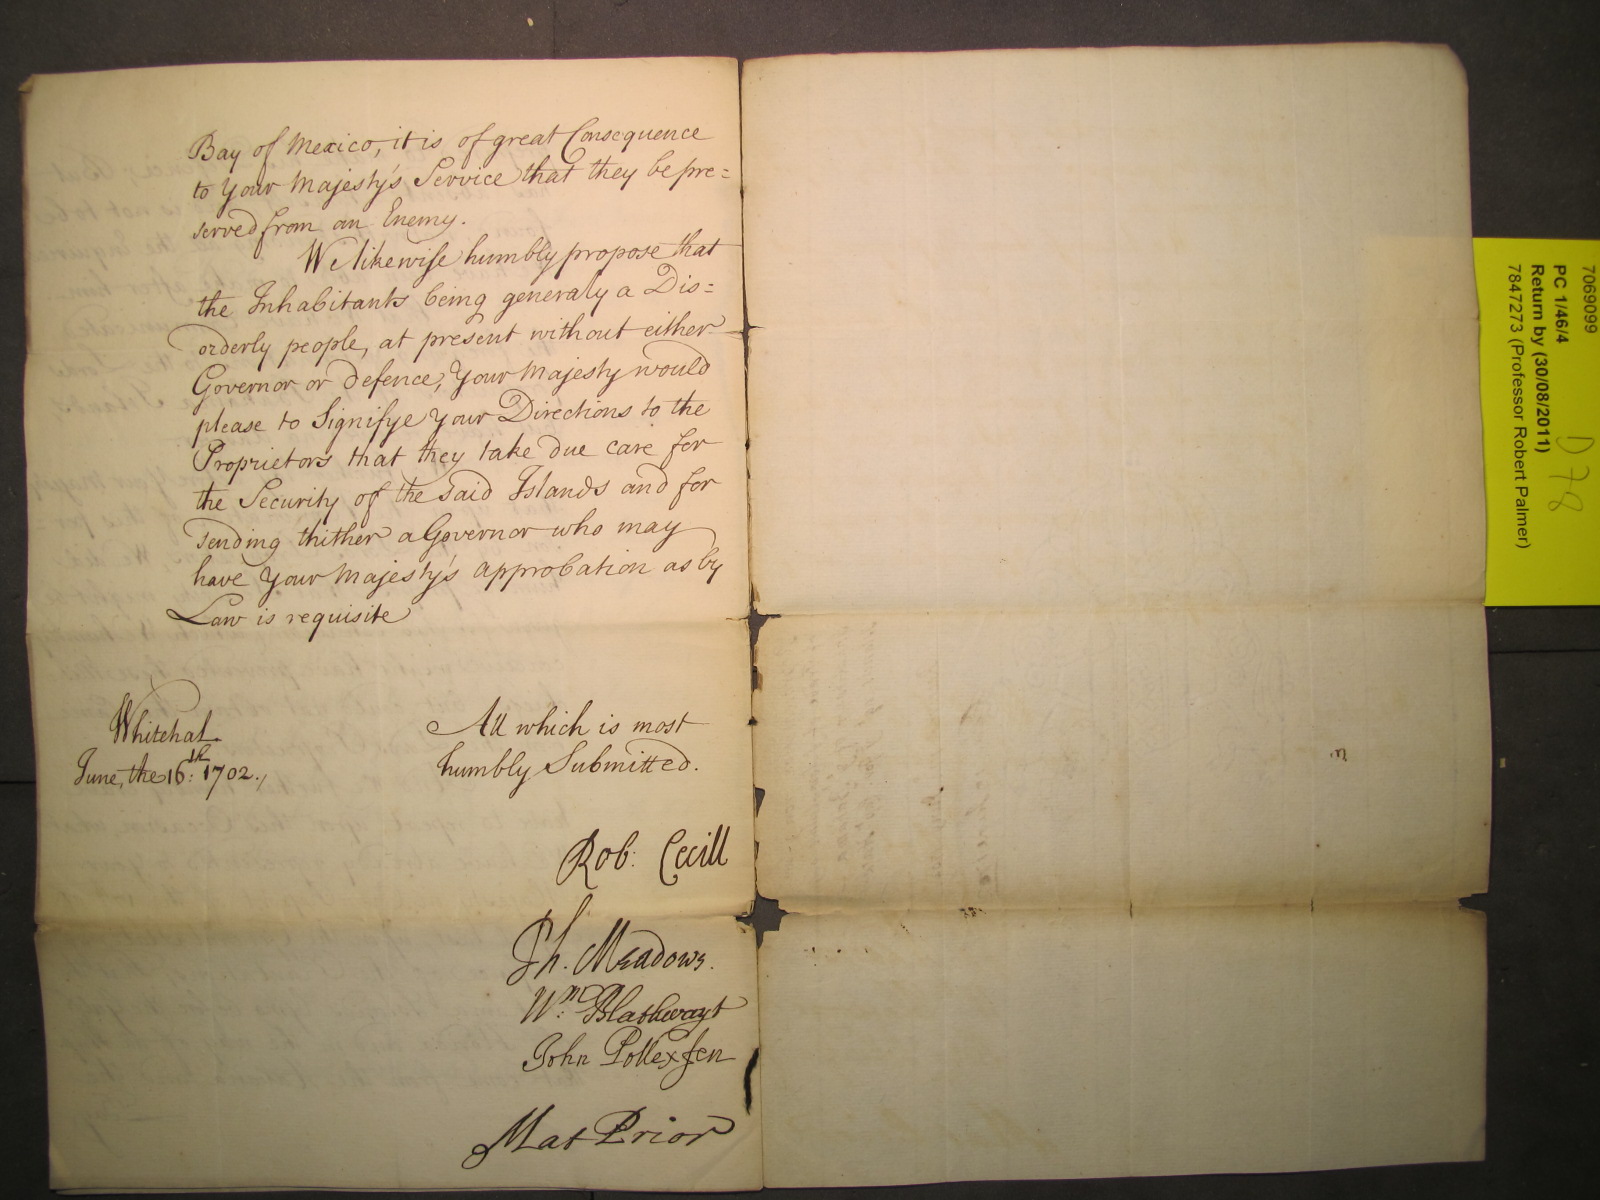 Bay of Mexico, it is of great Consequence
to Your Majesty's Service that they be pre=
served from an Enemy.
We likewise humbly propose that
the Inhabitants being generaly a Dis=
orderly people, at present without either
Governor or defence, Your Majesty would
please to Signifye Your Directions to the
Proprietors that they take due care for
the Security of the said Islands and for
sending thither a Governor who may
have Your Majesty's approbation as by
Law is requisite
All which is most
humbly Submitted.
Whitehal.
June, the 16th: 1702.
Rob: Cecill
Ph. Meadows.
Wm: Blathwayt
John Pollexfen
Mat Prior
7069099
PC 1/46/4
Return by (30/08/2011)
7847273 (Professor Robert Palmer)
D 78